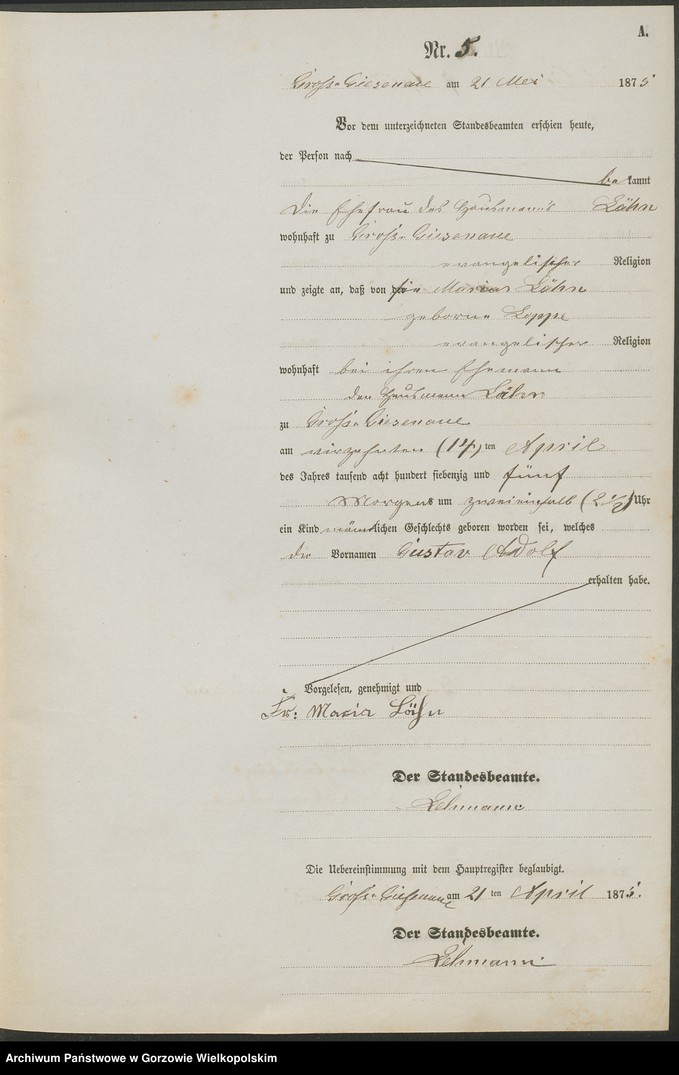 A.
Nr. 5.
Groß-Giesenaue am 21 Mei 1875
Vor dem unterzeichneten Standesbeamten erschien heute,
der Person nach
be kannt
Die Ehefrau des Hausmanns Löhn
wohnhaft zu Groß-Giesenaue
evangelischer Religion
und zeigte an, daß von Maria Löhn
geborne Koppe
evangelischer Religion
wohnhaft bei ihren Ehemann
den Hausmann Löhn
zu Groß-Giesenaue
am virzehnten (14) ten April
des Jahres tausend acht hundert siebenzig und fünf
Morgens um zweieinhalb (2 1/2) Uhr
ein Kind männlichen Geschlechts geboren worden sei, welches
die Vornamen Gustav Adolf
erhalten habe.
Vorgelesen, genehmigt und
Fr: Maria Löhn
Der Standesbeamte.
Lehmann
Die Uebereinstimmung mit dem Hauptregister beglaubigt.
Groß-Giesenaue am 21 ten April 1875.
Der Standesbeamte.
Lehmann
Archiwum Państwowe w Gorzowie Wielkopolskim